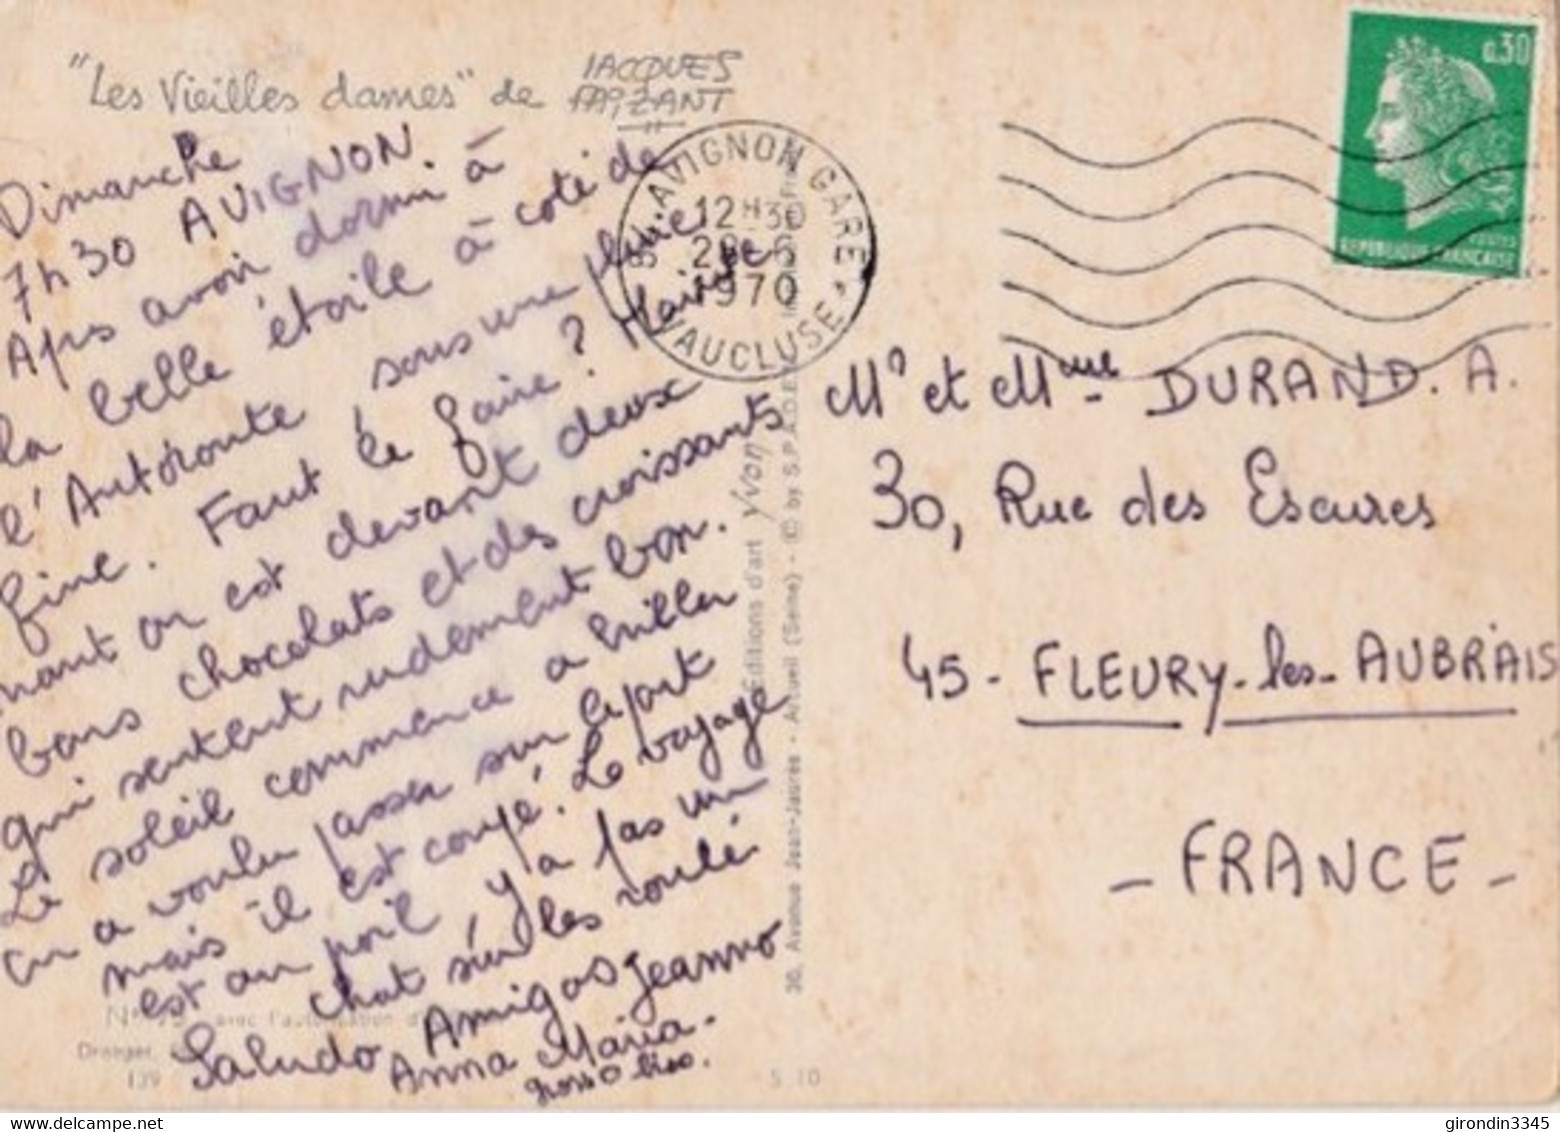 "Les Vieilles dames" de JACQUES FAIZANT
Dimanche
7h30 AVIGNON.
Aprs avoir dormi à
la belle étoile à coté de
l'Autoroute sous une pluie
fine. Faut le faire ? Mainte
nant on est devant deux
bons chocolats et des croissants
qui sentent rudement bon.
Le soleil commence a briller
on a voulu passer sur le pont
mais il est coupé. Le voyage
est au poil y a pas un
chat sur les
Saludo Amigos Jeanno
Anna Maria.
grosso biso.
84 AVIGNON GARE
12H30
28-6
1970
VAUCLUSE
0,30
REPUBLIQUE FRANÇAISE
POSTES
Mr et Mme DURAND. A.
30, Rue des Escures
45 - FLEURY-les-AUBRAIS
- FRANCE -
Editions d'art Yvon
30, Avenue Jean-Jaurès - Arcueil (Seine) - © by S.P.A.D.E.M.
avec l'autorisation d
Draeger,
139
S 10
girondin3345